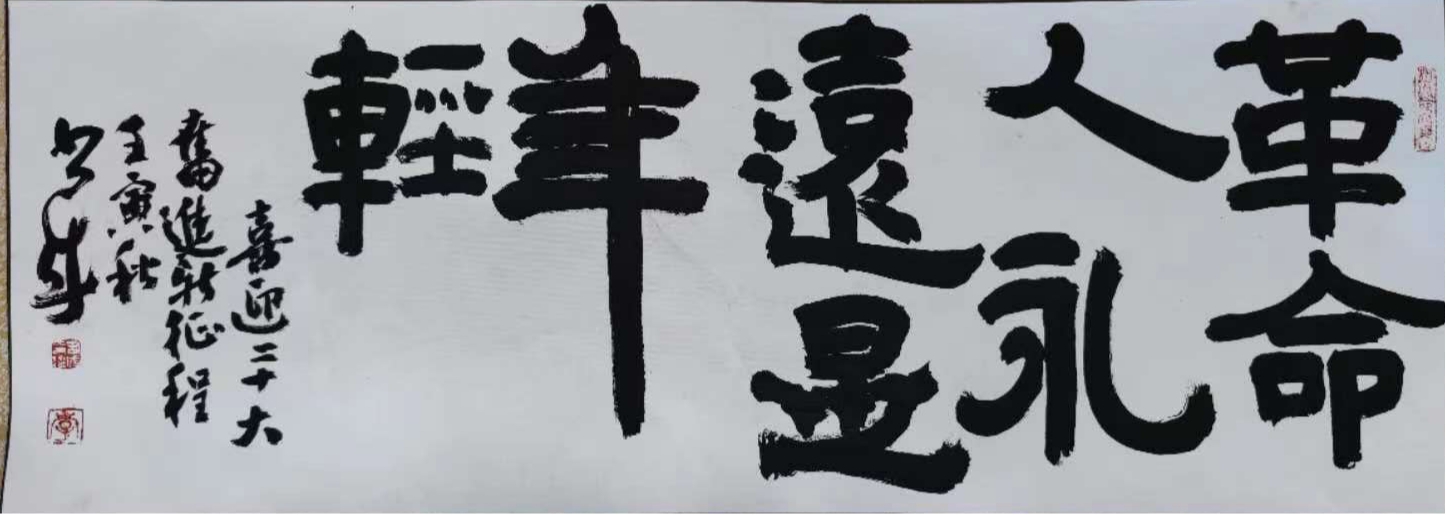 革命
人永
遠是
年
輕
喜迎二十大
奮進新征程
壬寅秋